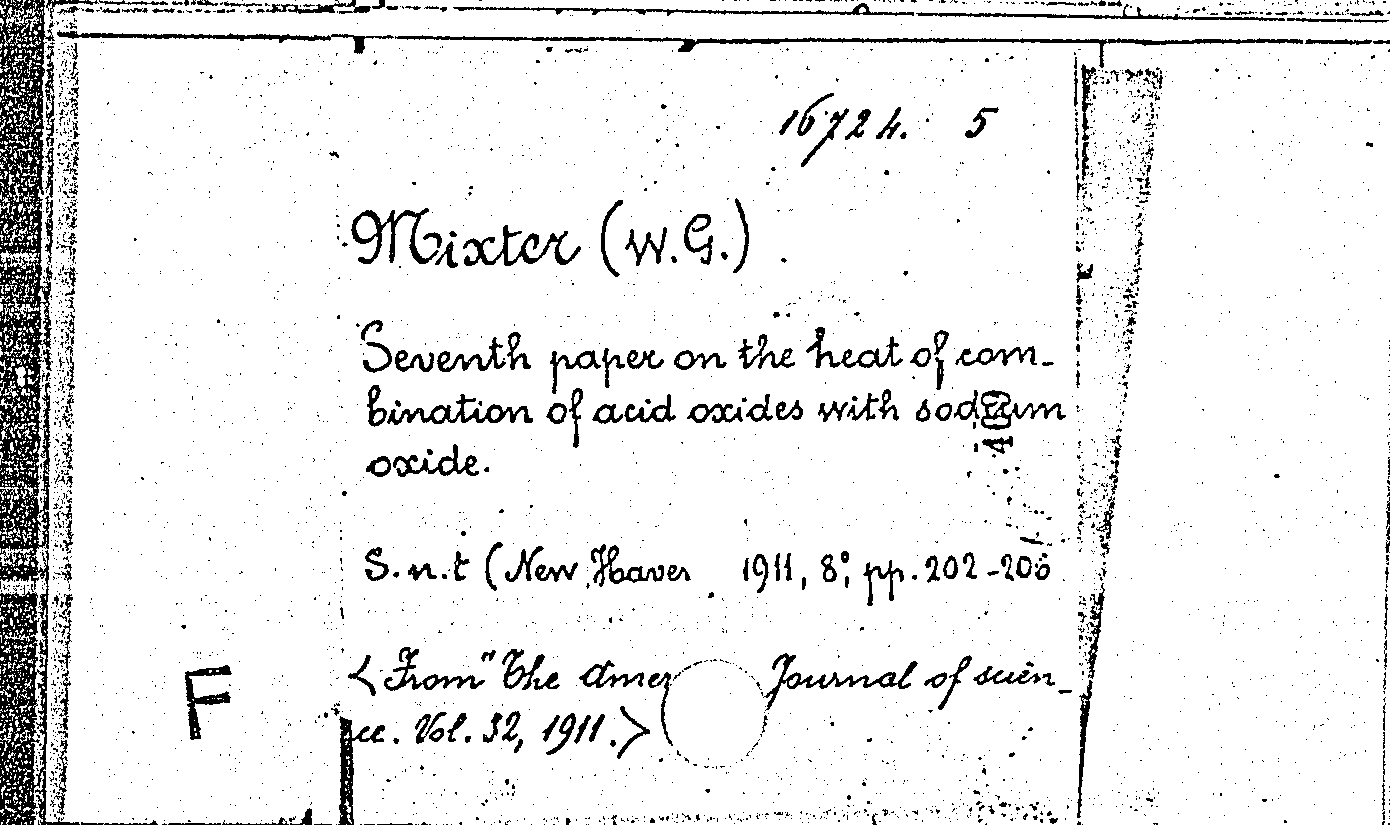 16724. 5
Mixter (W.G.)
Seventh paper on the heat of com-
bination of acid oxides with sodium
oxide.
S.n.t (New Haven 1911, 8°, pp. 202-206
F
<From "The Amer Journal of scien-
ce. Vol. 32, 1911.>